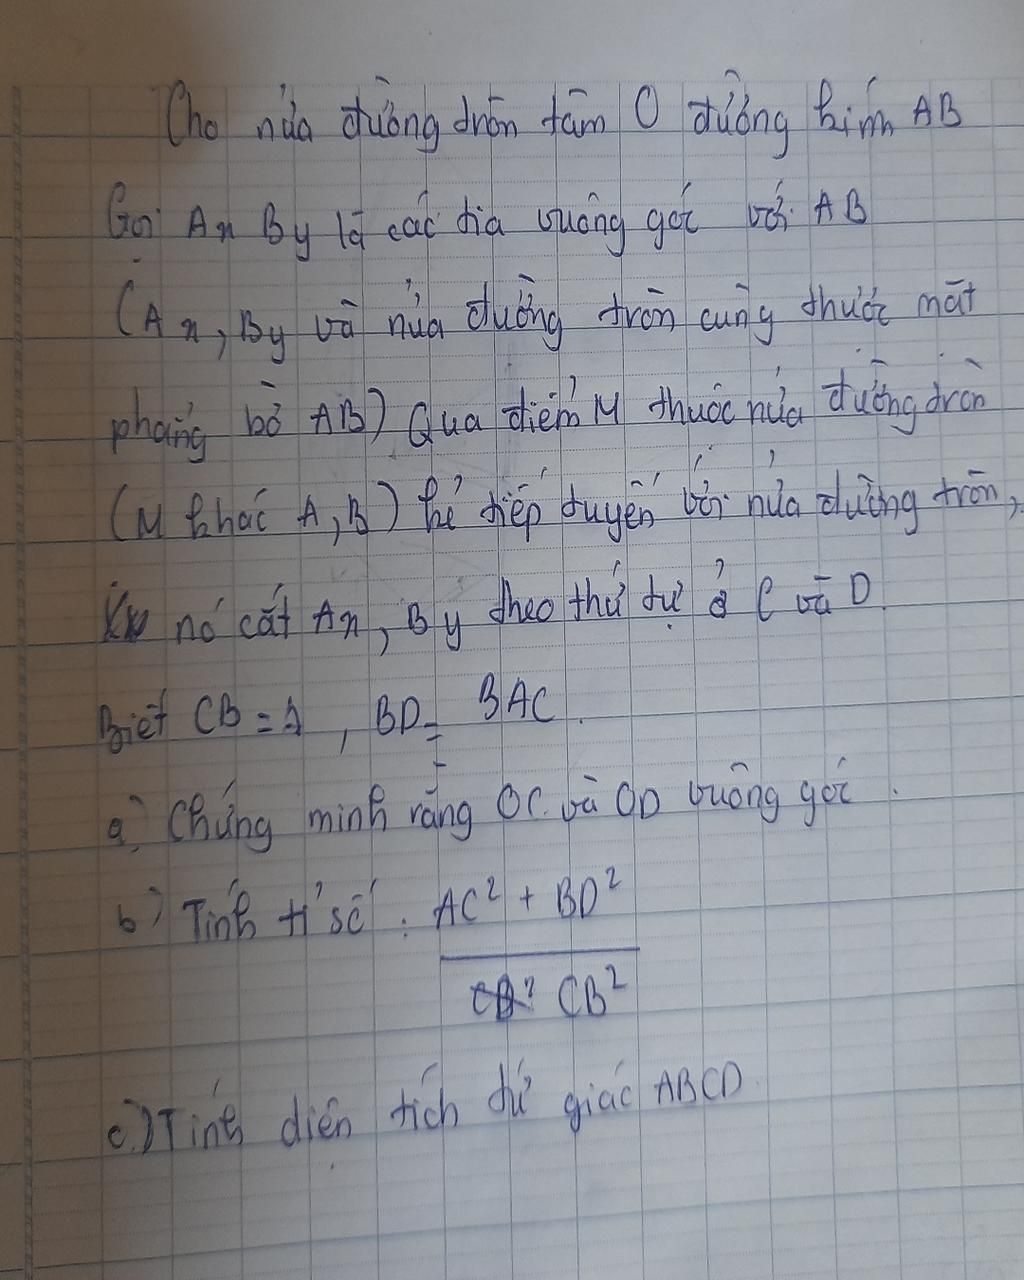 Cho nửa đường tròn tâm O đường kính AB
Gọi Ax By là các tia vuông góc với AB
(Ax, By và nửa đường tròn cùng thuộc mặt
phẳng bờ AB) Qua điểm M thuộc nửa đường tròn
(M khác A, B) kẻ tiếp tuyến với nửa đường tròn,
nó cắt Ax, By theo thứ tự ở C và D
Biết CB = 1, BD = 3AC.
a) Chứng minh rằng OC và OD vuông góc.
b) Tính tỉ số: AC² + BD²
CB²
c.) Tính diện tích tứ giác ABCD